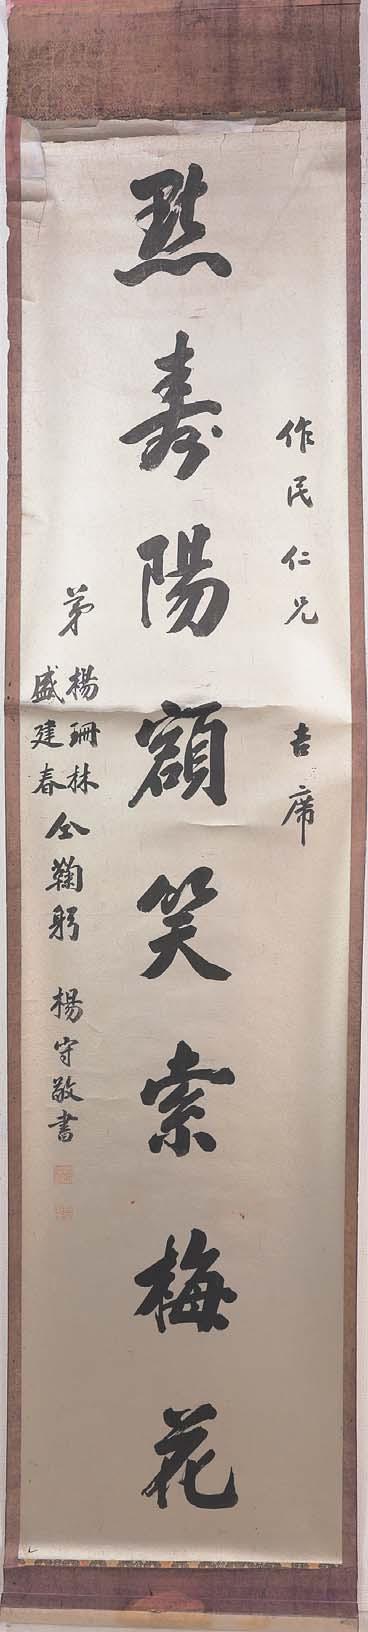 作民仁兄 吉席
點壽陽額笑索梅花
弟 楊珊林
盛建春
仝鞠躬 楊守敬書